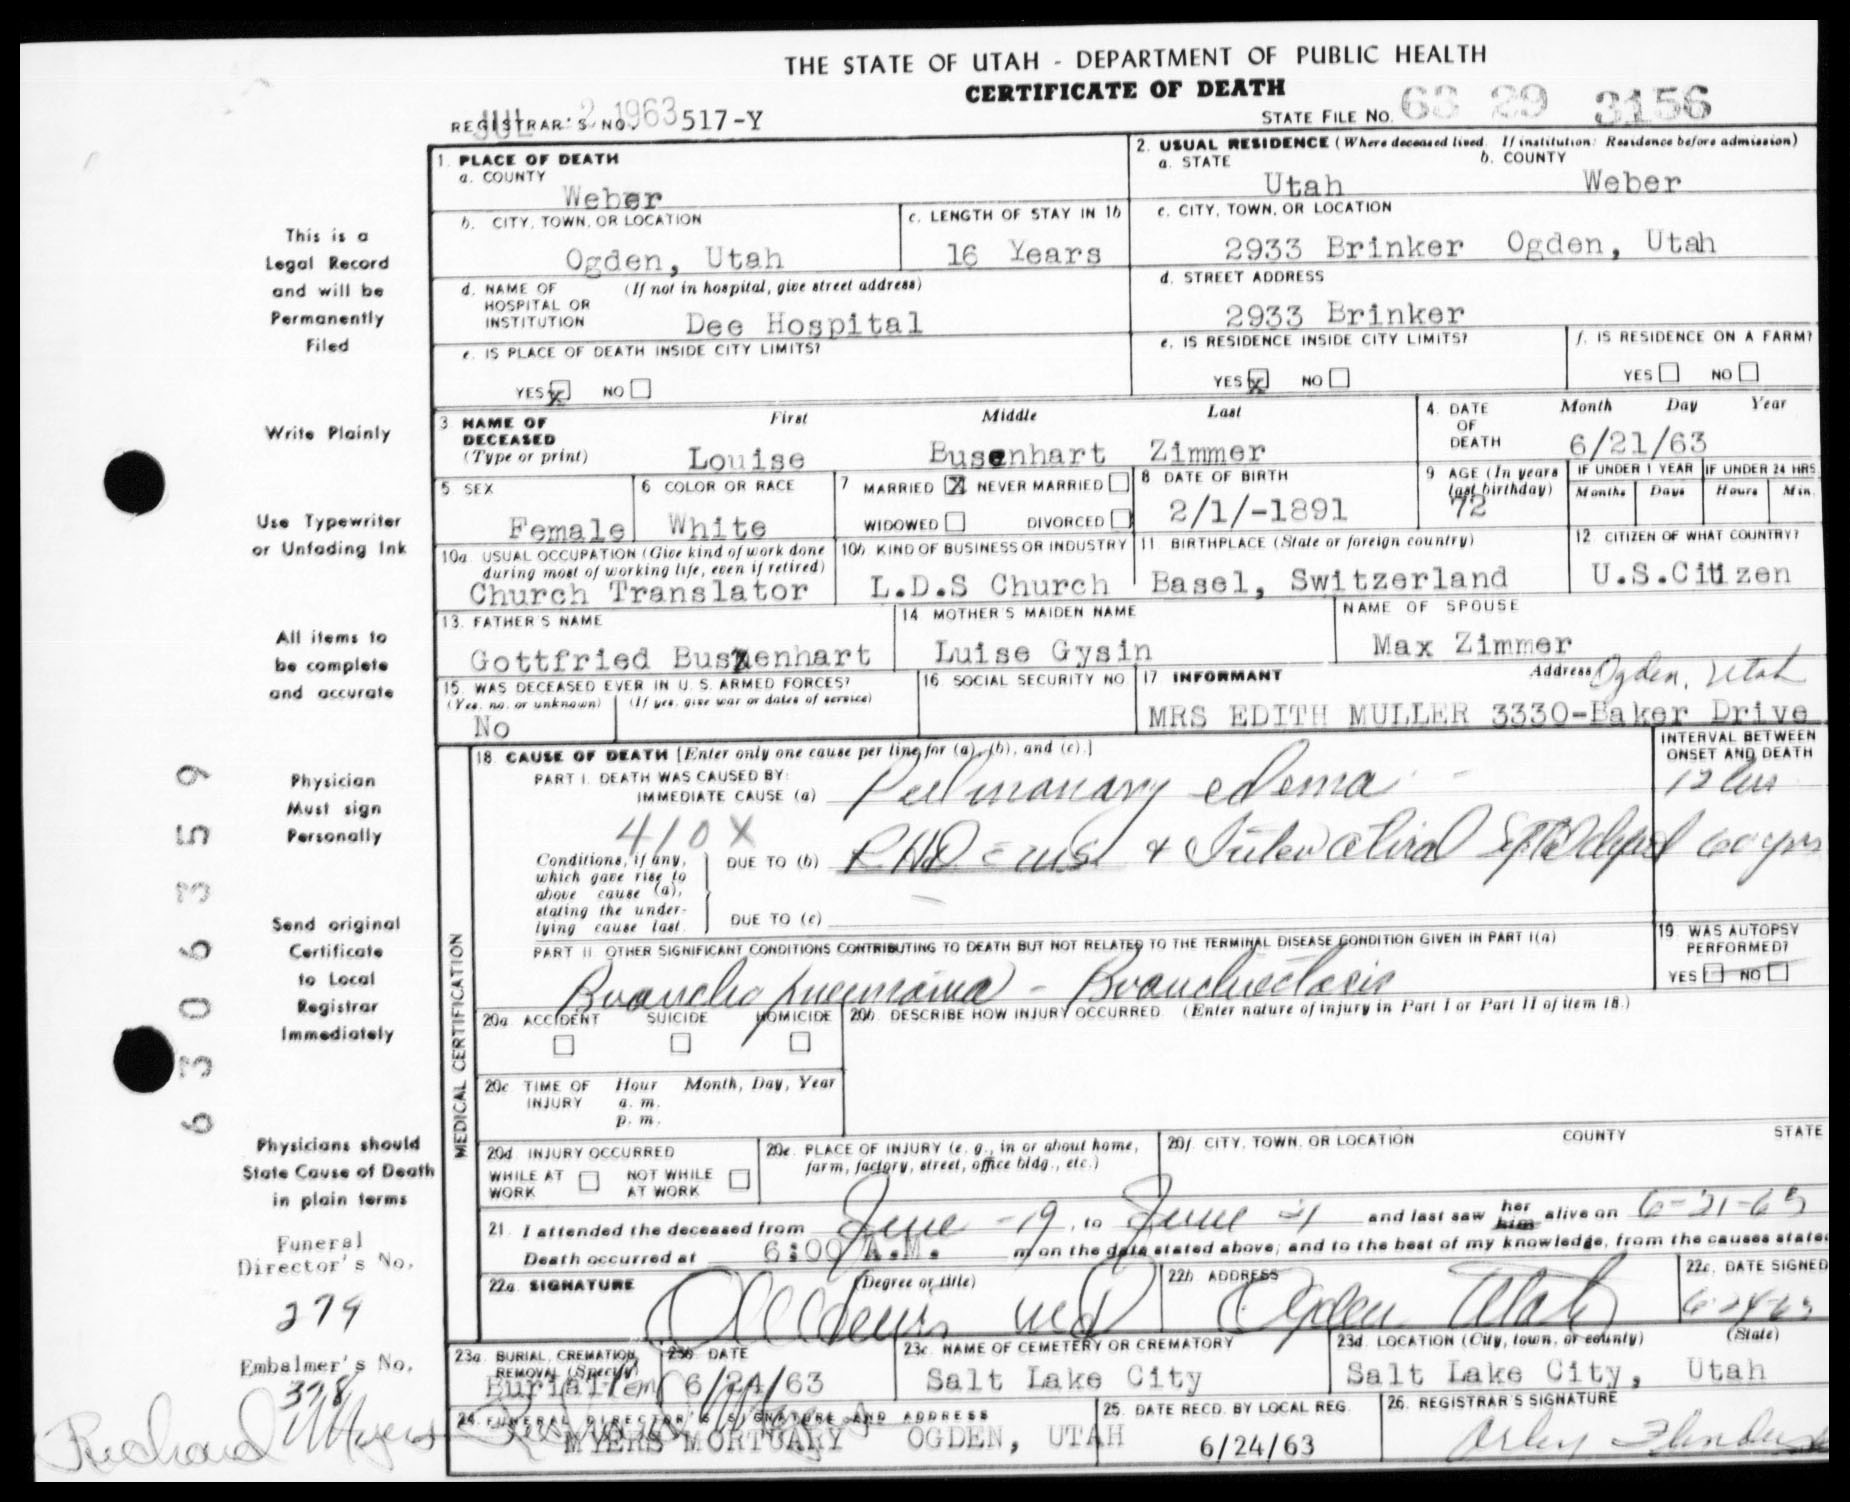 THE STATE OF UTAH - DEPARTMENT OF PUBLIC HEALTH
CERTIFICATE OF DEATH
JUL 2 1963
REGISTRAR'S NO. 517-Y
STATE FILE NO. 63 29 3156
1. PLACE OF DEATH
a. COUNTY
Weber
2. USUAL RESIDENCE (Where deceased lived. If institution: Residence before admission)
a. STATE b. COUNTY
Utah Weber
b. CITY, TOWN, OR LOCATION
Ogden, Utah
c. LENGTH OF STAY IN 1b
16 Years
c. CITY, TOWN, OR LOCATION
2933 Brinker Ogden, Utah
d. NAME OF HOSPITAL OR INSTITUTION (If not in hospital, give street address)
Dee Hospital
d. STREET ADDRESS
2933 Brinker
e. IS PLACE OF DEATH INSIDE CITY LIMITS?
YES X NO
e. IS RESIDENCE INSIDE CITY LIMITS?
YES X NO
f. IS RESIDENCE ON A FARM?
YES NO
3 NAME OF DECEASED (Type or print)
First Middle Last
Louise Busenhart Zimmer
4. DATE OF DEATH
Month Day Year
6/21/63
5 SEX
Female
6 COLOR OR RACE
White
7 MARRIED X NEVER MARRIED
WIDOWED DIVORCED
8 DATE OF BIRTH
2/1/-1891
9 AGE (In years last birthday)
72
IF UNDER 1 YEAR
Months Days
IF UNDER 24 HRS.
Hours Min.
10a. USUAL OCCUPATION (Give kind of work done during most of working life, even if retired)
Church Translator
10b. KIND OF BUSINESS OR INDUSTRY
L.D.S Church
11 BIRTHPLACE (State or foreign country)
Basel, Switzerland
12 CITIZEN OF WHAT COUNTRY?
U.S.Citizen
13. FATHER'S NAME
Gottfried Busenhart
14 MOTHER'S MAIDEN NAME
Luise Gysin
NAME OF SPOUSE
Max Zimmer
15. WAS DECEASED EVER IN U. S. ARMED FORCES?
(Yes, no, or unknown) (If yes, give war or dates of service)
No
16 SOCIAL SECURITY NO.
17 INFORMANT Address Ogden, Utah
MRS EDITH MULLER 3330-Baker Drive
MEDICAL CERTIFICATION
18. CAUSE OF DEATH [Enter only one cause per line for (a), (b), and (c).]
INTERVAL BETWEEN ONSET AND DEATH
PART I. DEATH WAS CAUSED BY:
IMMEDIATE CAUSE (a) Pulmonary edema 12 hrs
410X
Conditions, if any, which gave rise to above cause (a), stating the underlying cause last.
DUE TO (b) RHD 60 yrs
DUE TO (c)
PART II OTHER SIGNIFICANT CONDITIONS CONTRIBUTING TO DEATH BUT NOT RELATED TO THE TERMINAL DISEASE CONDITION GIVEN IN PART I(a)
Bronchopneumonia - Bronchiectasis
19. WAS AUTOPSY PERFORMED?
YES NO
20a. ACCIDENT SUICIDE HOMICIDE
20b. DESCRIBE HOW INJURY OCCURRED. (Enter nature of injury in Part I or Part II of item 18.)
20c TIME OF INJURY Hour Month, Day, Year
a. m.
p. m.
20d INJURY OCCURRED
WHILE AT WORK NOT WHILE AT WORK
20e. PLACE OF INJURY (e. g., in or about home, farm, factory, street, office bldg., etc.)
20f. CITY, TOWN, OR LOCATION COUNTY STATE
21. I attended the deceased from June -19, to June 21 and last saw her him alive on 6-21-63
Death occurred at 6:00 A.M. m on the date stated above; and to the best of my knowledge, from the causes stated
22a. SIGNATURE (Degree or title)
MD
22b ADDRESS
Ogden Utah
22c. DATE SIGNED
6-24-63
23a. BURIAL, CREMATION, REMOVAL (Specify)
Burial
23b DATE
6/24/63
23c. NAME OF CEMETERY OR CREMATORY
Salt Lake City
23d. LOCATION (City, town, or county) (State)
Salt Lake City, Utah
24. FUNERAL DIRECTOR'S SIGNATURE AND ADDRESS
MYERS MORTUARY OGDEN, UTAH
25. DATE RECD. BY LOCAL REG.
6/24/63
26. REGISTRAR'S SIGNATURE
This is a
Legal Record
and will be
Permanently
Filed
Write Plainly
Use Typewriter
or Unfading Ink
All items to
be complete
and accurate
Physician
Must sign
Personally
Send original
Certificate
to Local
Registrar
Immediately
Physicians should
State Cause of Death
in plain terms
Funeral
Director's No.
279
Embalmer's No.
378
Richard Myers
6 3 0 6 3 3 5 9